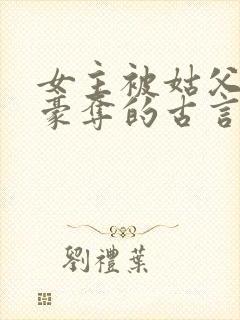 女主被姑父
豪奪的古言
劉禮葉